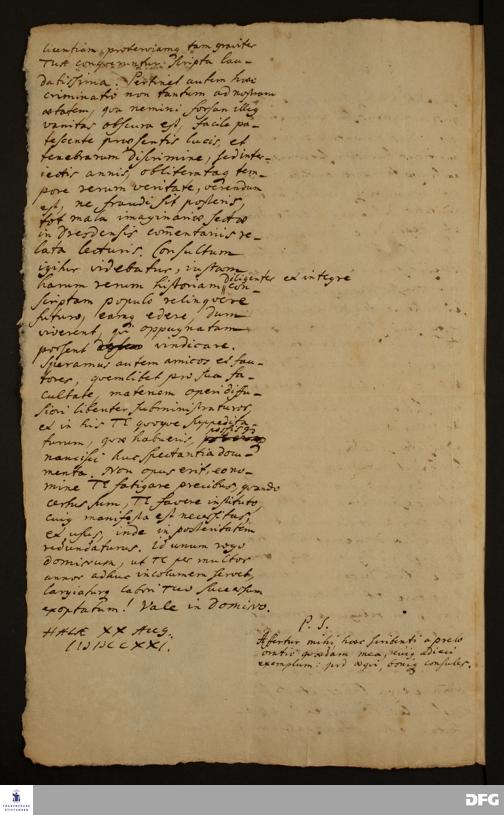 licentiam, proterviamq tam graviter
Tua scripta lau-
datissima. Pertinet autem haec
criminatio non tantum ad nostram
aetatem, qua nemini forsan illius
vanitas obscura est, facile pa-
tescente praesentis lucis, et
tenebrarum discrimine, sed inter-
iectis annis, obliterataq tem-
pore rerum veritate, verendum
est, ne fraudi sit posteris,
tot mala imaginariae sectae
in Dresdensis com̄entariis re-
lata lecturis. Consultum
igitur videbatur, iustam
harum rerum historiam, diligenter ex integre con-
scriptam populo relinquere
futuro, eamq edere, dum
viverent, qui oppugnatam
possent vindicare.
Speramus autem amicos et fau-
tores, quemlibet pro sua fa-
cultate, materiem operi diffu-
siori libenter subministraturos,
ex in his TE quoque suppedita-
turum, quae habueris, 
nancisci huc spectantia docu-
menta. Non opus erit, eono-
mine TE fatigare precibus, quando
certus sum, TE favere instituto,
cuiq manifesta est necessitas,
et usus, inde in posteritatem
redundaturus. Id unum rogo
dominum, ut TE per multos
annos adhuc incolumem servet,
largiaturq labori Tuo successum
exoptatum! Vale in Domino.
HALAE XX Aug.
CIↃIↃCCXXI.
P. S.
Afertur mihi haec scribenti a prelo
oratio quaedam mea, cuiq adieci
exemplum: pro aequi, boniq consules.
FRANCKESCHE
STIFTUNGEN
DFG